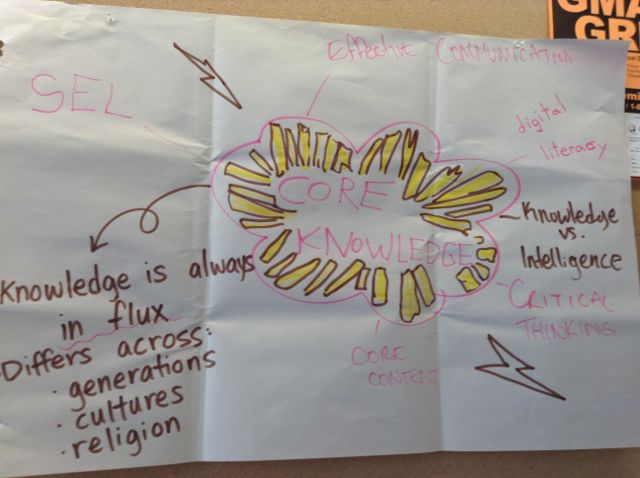 GMA
GR
Effective COMMUNICATION
SEL
digital
literacy
CORE
KNOWLEDGE
Knowledge
vs.
Intelligence
CRITICAL
THINKING
CORE
CONTENT
Knowledge is always
in flux
Differs across:
· generations
· cultures
· religion